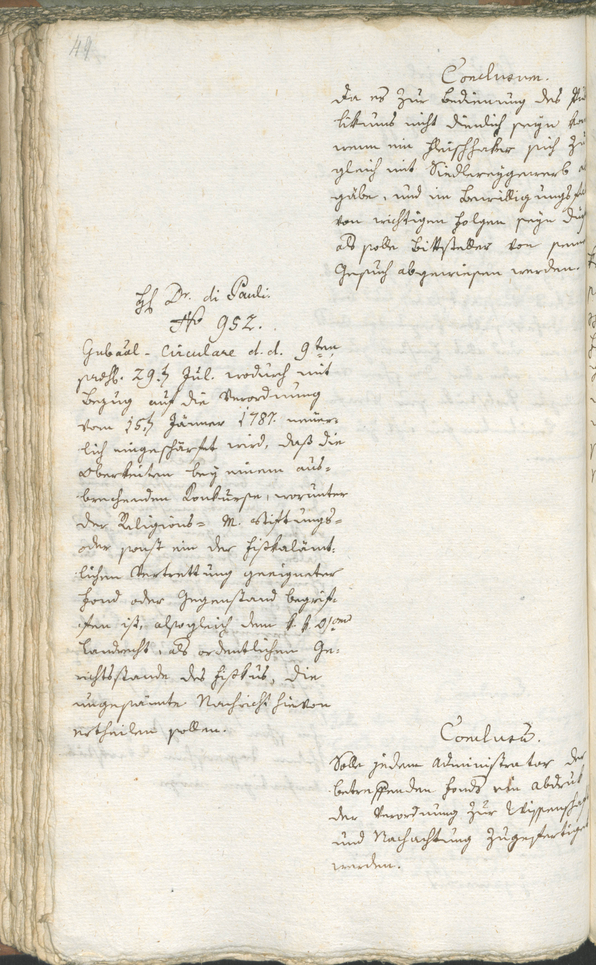 49
Conclusum.
da es zur Bedienung des Pu
likums nicht dienlich seyn
wenn ein Fleischhaker sich zu
gleich mit Siedlereygewerb a
gäbe, und im Bewilligungs
von wichtigen Folgen seyn
als solle Bittsteller von
Gesuch abgewiesen werden.
H Dr. di Pauli.
No 952.
Gubãal-Circulare d.d. 9ten
praes. 29. Jul. wodurch mit
Bezug auf die Verordnung
vom 15. Jänner 1787. neuer-
lich eingeschärfet wird, daß die
Obrkeiten bey einem aus-
brechenden Konkurse, worunter
der Religions- M. Stiftungs-
oder sonst ein der Fiskalämt-
lichen Vertrettung geeigneter
Fond oder Gegenstand begrif-
fen ist, alsogleich dem k. k.
Landrecht, als ordentlichen Ge-
richtsstande des Fiskus, die
ungesäumte Nachricht hievon
ertheilen sollen.
Conclus.
Solle jedem Administrator der
betreffenden Fonds ein Abdruk
der Verordnung zur Wissenscha
und Nachachtung zugefertige
werden.